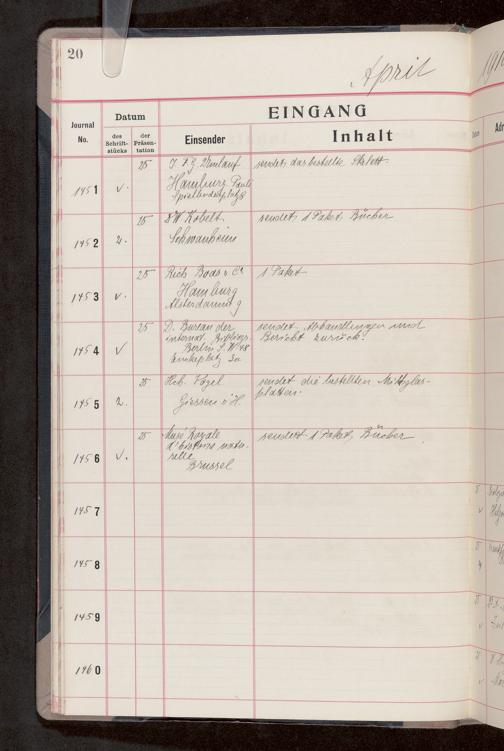 20
April
Journal No.
Datum
des Schrift-stücks
der Präsen-tation
EINGANG
Einsender
Inhalt
1451 v. 25 J. F. G. Umlauf sendet das bestellte Skelett.
Hamburg Pauli
Spielbudenplatz 8
1452 2. 25 W. Kobelt sendet 1 Paket Bücher
Schwanheim
1453 v. 25 Rich. Boas & Co 1 Paket
Hamburg
Alsterdamm 9
1454 v 25 D. Bureau der sendet Abhandlungen und
internat. Bibliogr. Bericht zurück.
Berlin S.W. 48
Enckeplatz 3a
1455 2. 25 Hch. Vogel sendet die bestellten
platten.
Giessen
1456 v. 25 Musé Royale sendet 1 Paket Bücher
d'histoire natu-
relle
Brussel
1457
1458
1459
1460